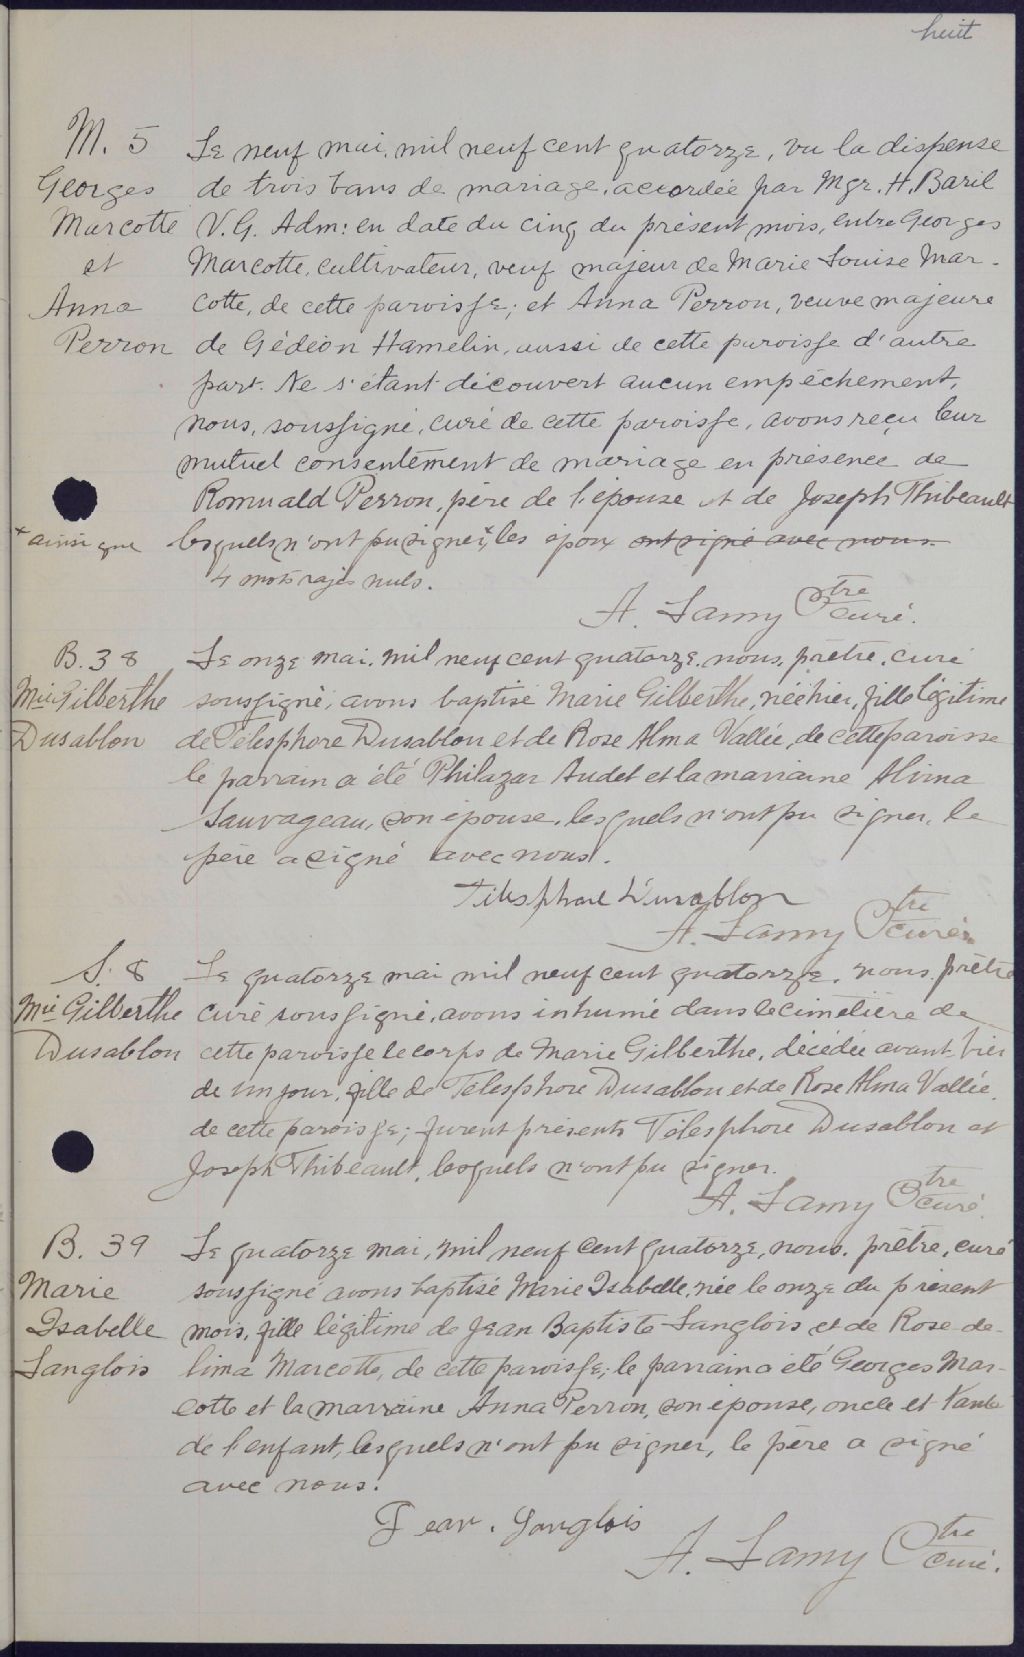 huit
M. 5
Georges
Marcotte
et
Anna
Perron
Le neuf mai, mil neuf cent quatorze, vu la dispense
de trois bans de mariage, accordée par Mgr. H. Baril
V. G. Adm: en date du cinq du présent mois, entre Georges
Marcotte, cultivateur, veuf majeur de Marie Louise Mar-
cotte, de cette paroisse; et Anna Perron, veuve majeure
de Gédéon Hamelin, aussi de cette paroisse d'autre
part. Ne s'étant découvert aucun empêchement,
nous, soussigné, curé de cette paroisse, avons reçu leur
mutuel consentement de mariage en présence de
Romuald Perron, père de l'épouse et de Joseph Thibeault
lesquels n'ont pu signer,* les époux ont signé avec nous.
* ainsi que
4 mots rayés nuls.
A. Lamy Ptre
curé.
B. 38
Mie Gilberthe
Dusablon
Le onze mai, mil neuf cent quatorze, nous, prêtre, curé
soussigné, avons baptisé Marie Gilberthe, née hier, fille légitime
de Télesphore Dusablon et de Rose Alma Vallée, de cette paroisse
le parrain a été Philazar Audet et la marraine Alima
Sauvageau, son épouse, lesquels n'ont pu signer, le
père a signé avec nous.
Télesphore Dusablon
A. Lamy Ptre
curé.
S. 8
Mie Gilberthe
Dusablon
Le quatorze mai mil neuf cent quatorze, nous, prêtre
curé soussigné, avons inhumé dans le cimetière de
cette paroisse le corps de Marie Gilberthe, décédée avant-hier
de un jour, fille de Télesphore Dusablon et de Rose Alma Vallée,
de cette paroisse; furent présents Télesphore Dusablon et
Joseph Thibeault, lesquels n'ont pu signer.
A. Lamy Ptre
curé.
B. 39
Marie
Isabelle
Langlois
Le quatorze mai, mil neuf cent quatorze, nous, prêtre, curé
soussigné avons baptisé Marie Isabelle, née le onze du présent
mois, fille légitime de Jean Baptiste Langlois et de Rose-de-
lima Marcotte, de cette paroisse; le parrain a été Georges Mar-
cotte et la marraine Anna Perron, son épouse, oncle et tante
de l'enfant, lesquels n'ont pu signer, le père a signé
avec nous.
Jean. Langlois
A. Lamy Ptre
curé.